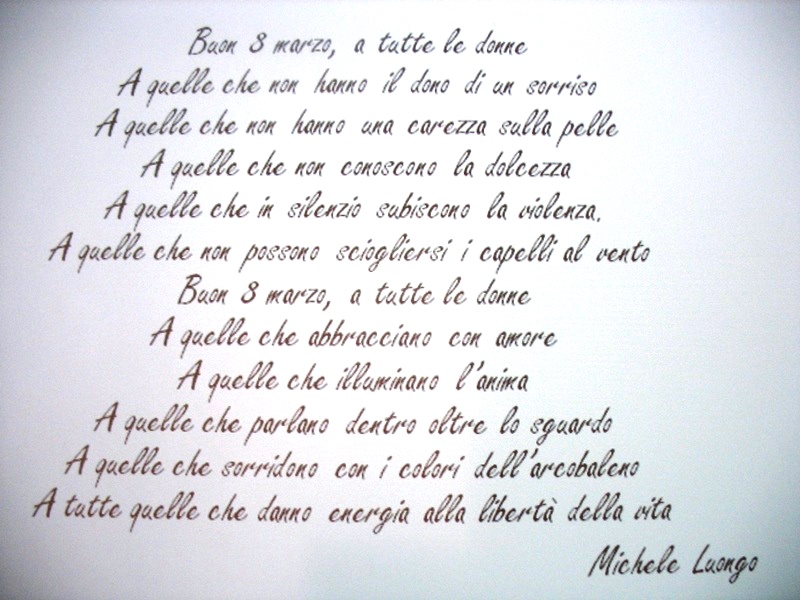 Buon 8 marzo, a tutte le donne
A quelle che non hanno il dono di un sorriso
A quelle che non hanno una carezza sulla pelle
A quelle che non conoscono la dolcezza
A quelle che in silenzio subiscono la violenza.
A quelle che non possono sciogliersi i capelli al vento
Buon 8 marzo, a tutte le donne
A quelle che abbracciano con amore
A quelle che illuminano l'anima
A quelle che parlano dentro oltre lo sguardo
A quelle che sorridono con i colori dell'arcobaleno
A tutte quelle che danno energia alla libertà della vita
Michele Luongo